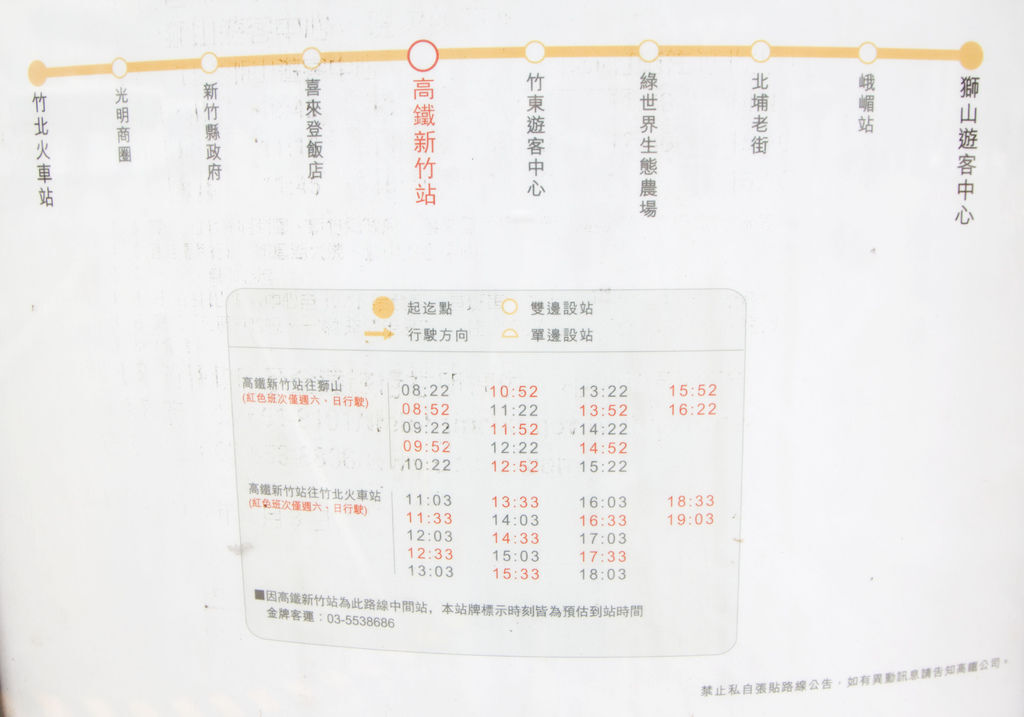 竹北火車站
光明商圈
新竹縣政府
喜來登飯店
高鐵新竹站
竹東遊客中心
綠世界生態農場
北埔老街
峨嵋站
獅山遊客中心
起迄點 雙邊設站
行駛方向 單邊設站
高鐵新竹站往獅山
(紅色班次僅週六、日行駛)
08:22 10:52 13:22 15:52
08:52 11:22 13:52 16:22
09:22 11:52 14:22
09:52 12:22 14:52
10:22 12:52 15:22
高鐵新竹站往竹北火車站
(紅色班次僅週六、日行駛)
11:03 13:33 16:03 18:33
11:33 14:03 16:33 19:03
12:03 14:33 17:03
12:33 15:03 17:33
13:03 15:33 18:03
■因高鐵新竹站為此路線中間站，本站牌標示時刻皆為預估到站時間
金牌客運：03-5538686
禁止私自張貼路線公告，如有異動訊息請告知高鐵公司。